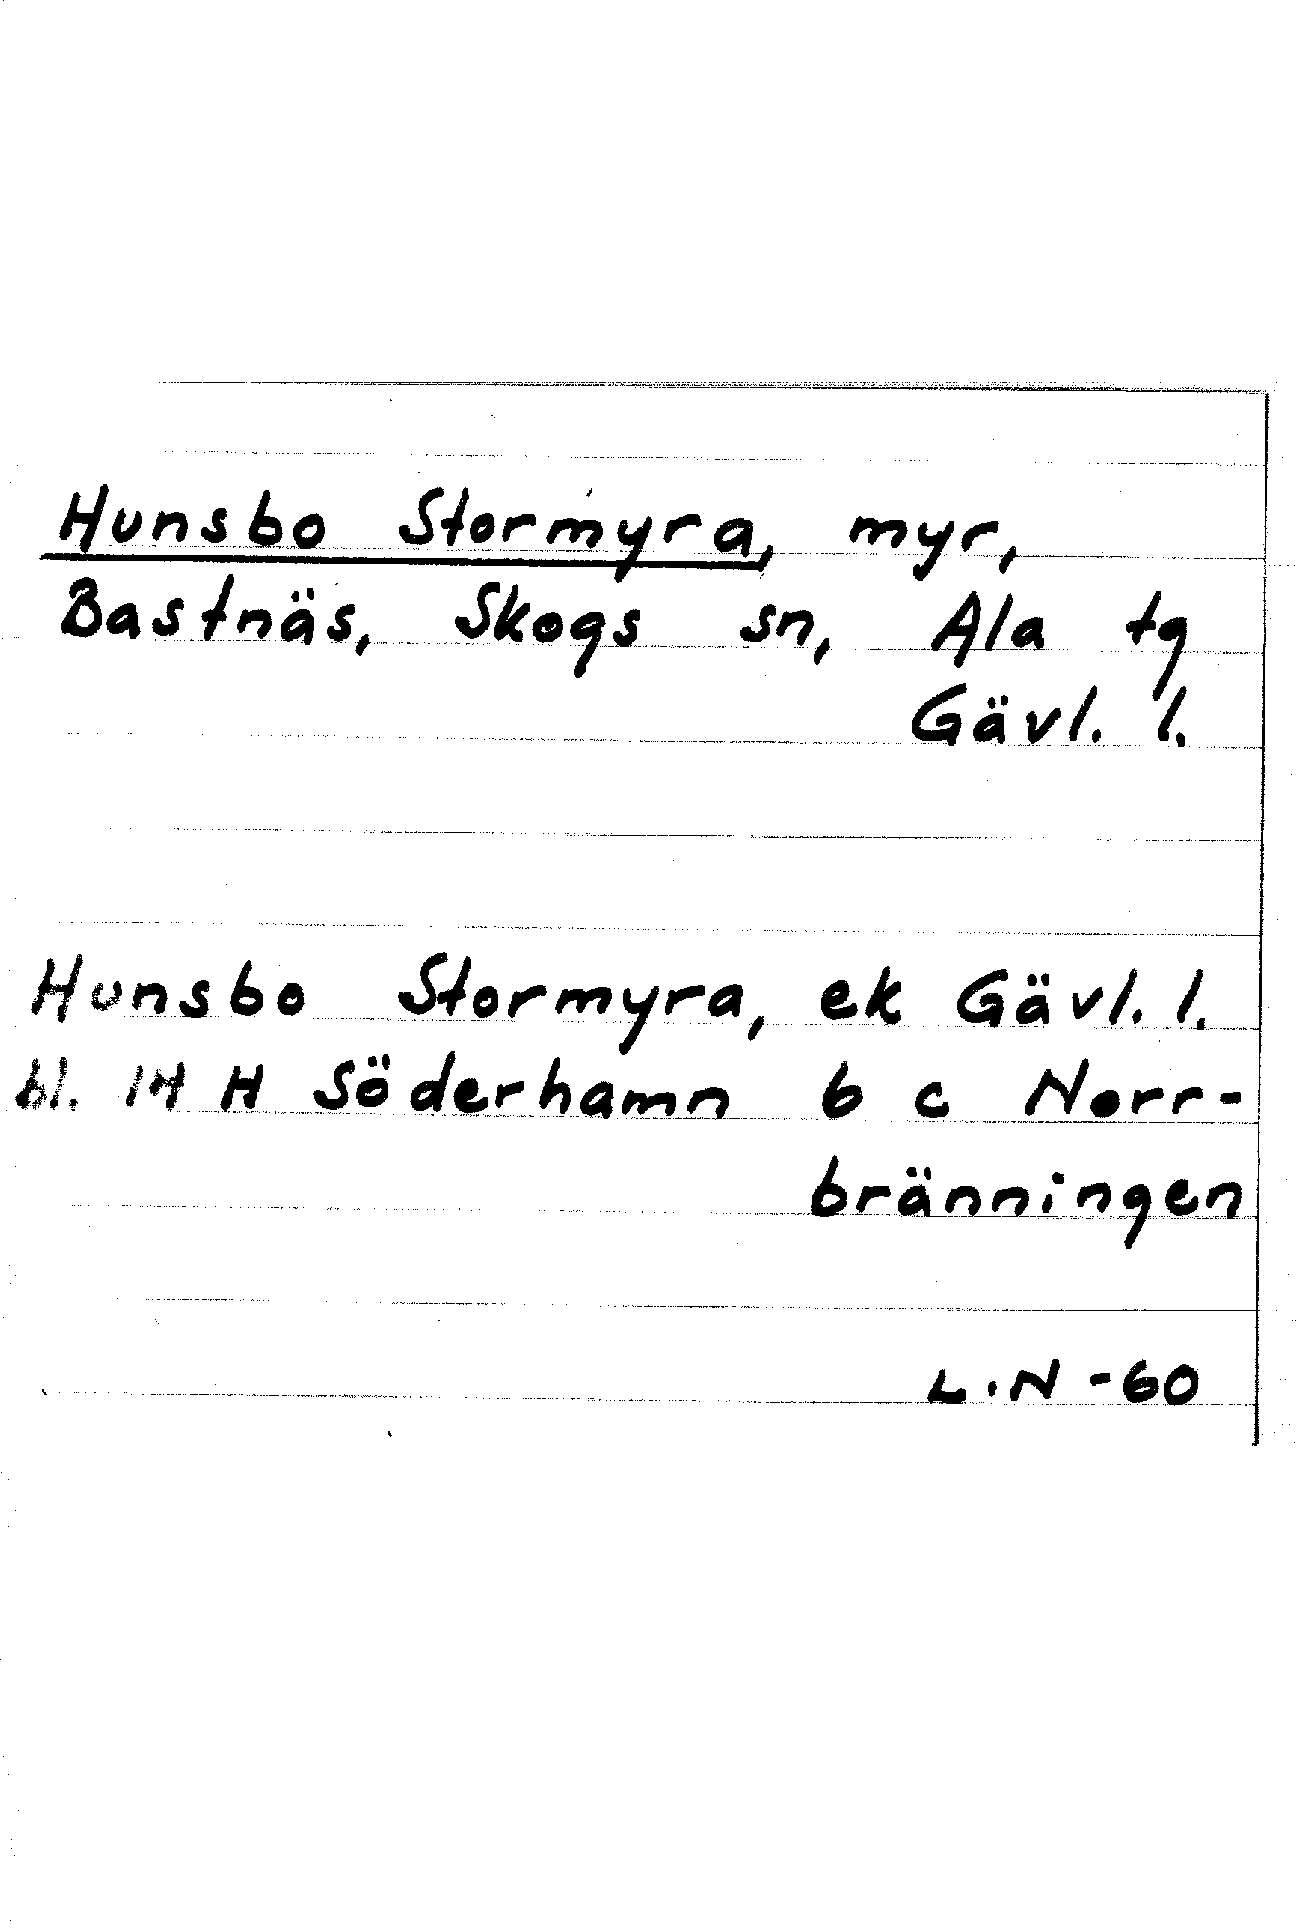 Hunsbo Stormyra, myr,
Bastnäs, Skogs sn, Ala tg
Gävl. l.
Hunsbo Stormyra, ek Gävl. l.
bl. 14 H Söderhamn b c Norr-
bränningen
L.N -60